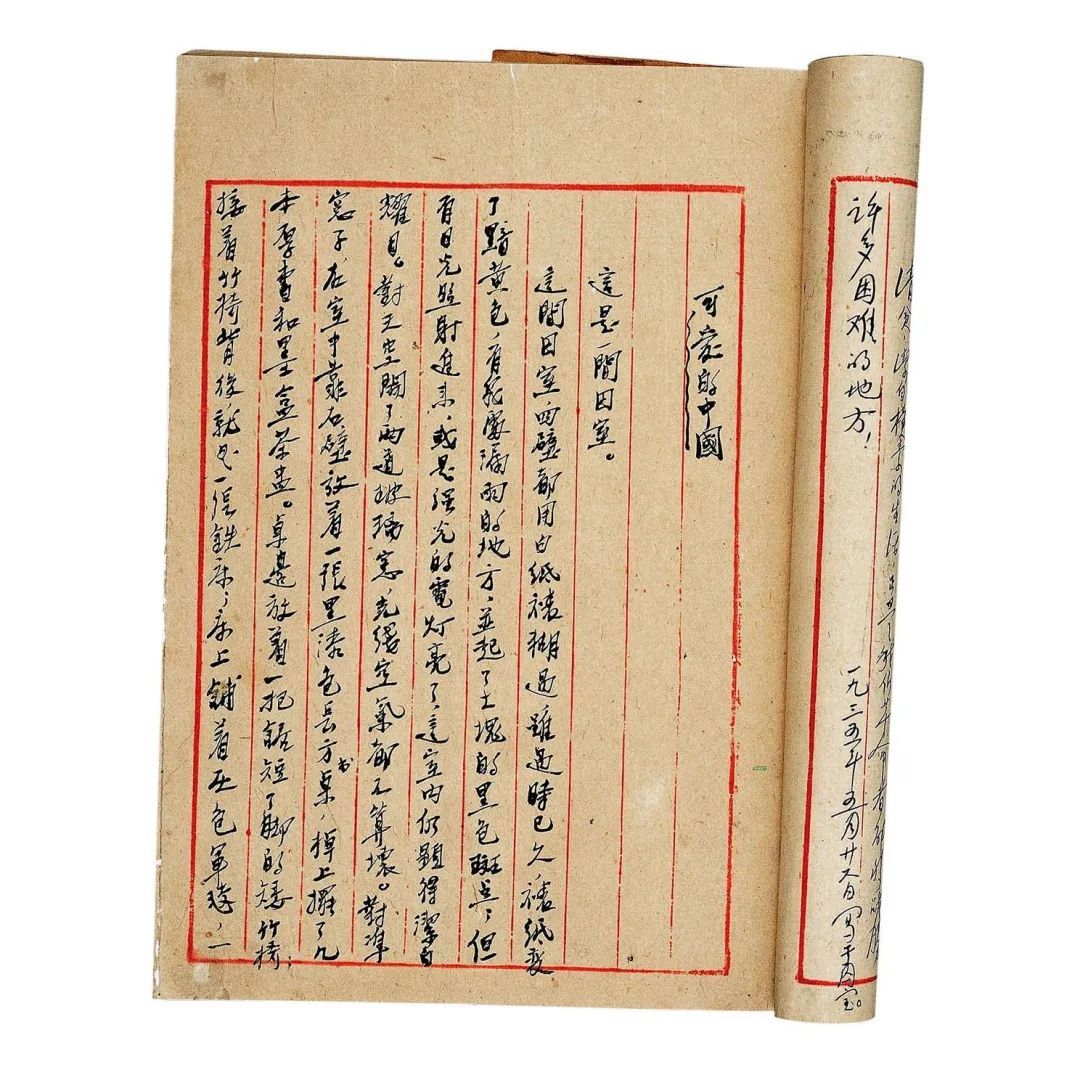 清貧,潔白朴素的生活,正是我们革命者能够战胜
許多困难的地方!
一九三五年五月廿六日写于囚室。
可愛的中國
這是一間囚室。
這間囚室,四壁都用白紙裱糊過,雖過時已久,裱紙変
了黯黄色,有幾處漏雨的地方,並起了大塊的黑色斑点;但
有日光照射進来,或是强光的電灯亮了,這室内仍顕得潔白
耀目。對天空開了两道玻璃窓,光綫空氣都不算壞。對準
窓子,在室中靠石壁放着一張黑漆色長方书桌,棹上擺了几
本厚書和墨盒茶盅。桌邊放着一把鋸短了脚的矮竹椅;
接着竹椅背後,就是一張鉄床;床上鋪着灰色軍毯,一